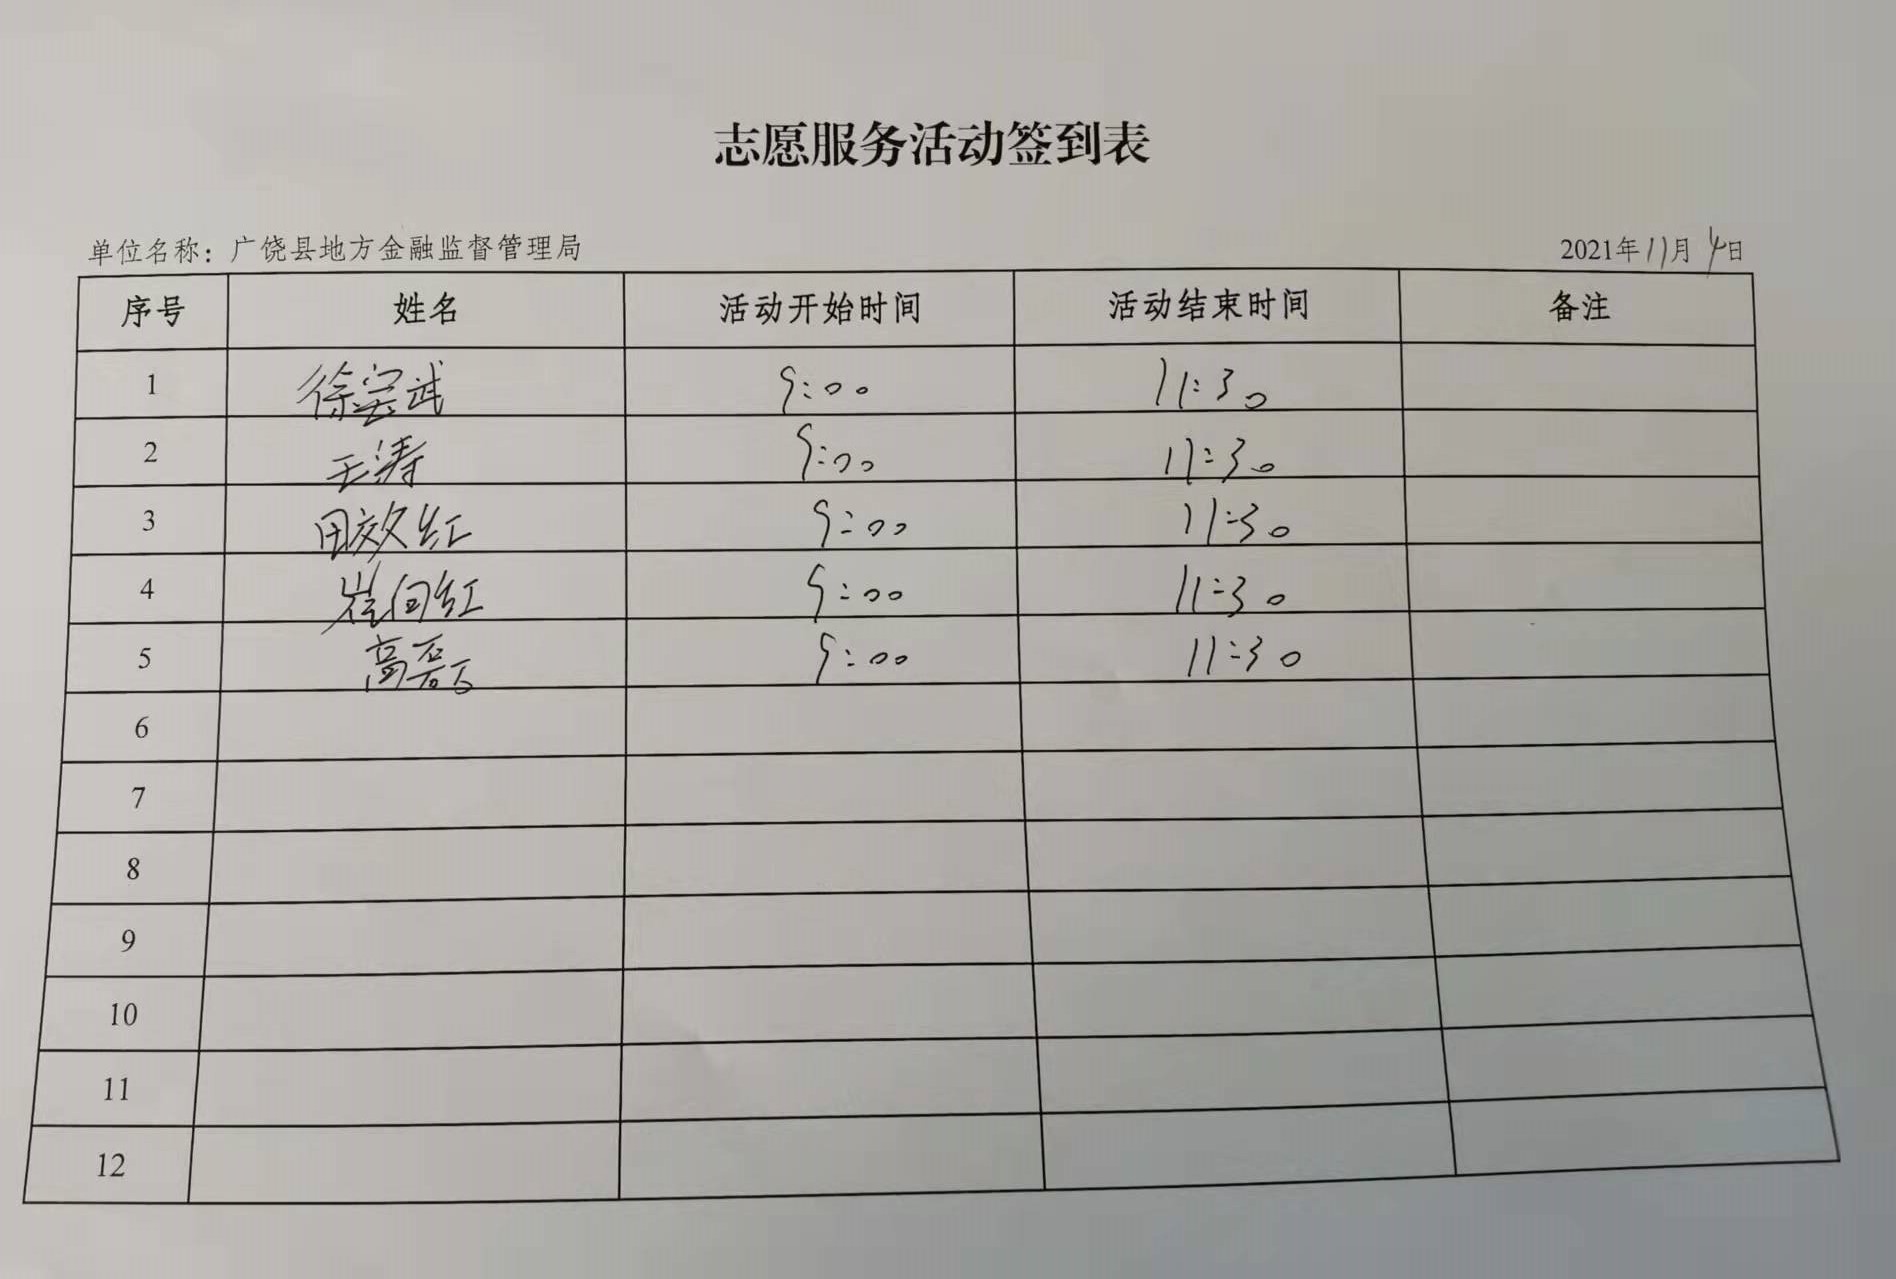 志愿服务活动签到表
单位名称：广饶县地方金融监督管理局 2021年11月4日
序号 姓名 活动开始时间 活动结束时间 备注
1 徐宝武 9:00 11:30
2 王涛 9:00 11:30
3 田效红 9:00 11:30
4 崔向红 9:00 11:30
5 高磊 9:00 11:30
6
7
8
9
10
11
12